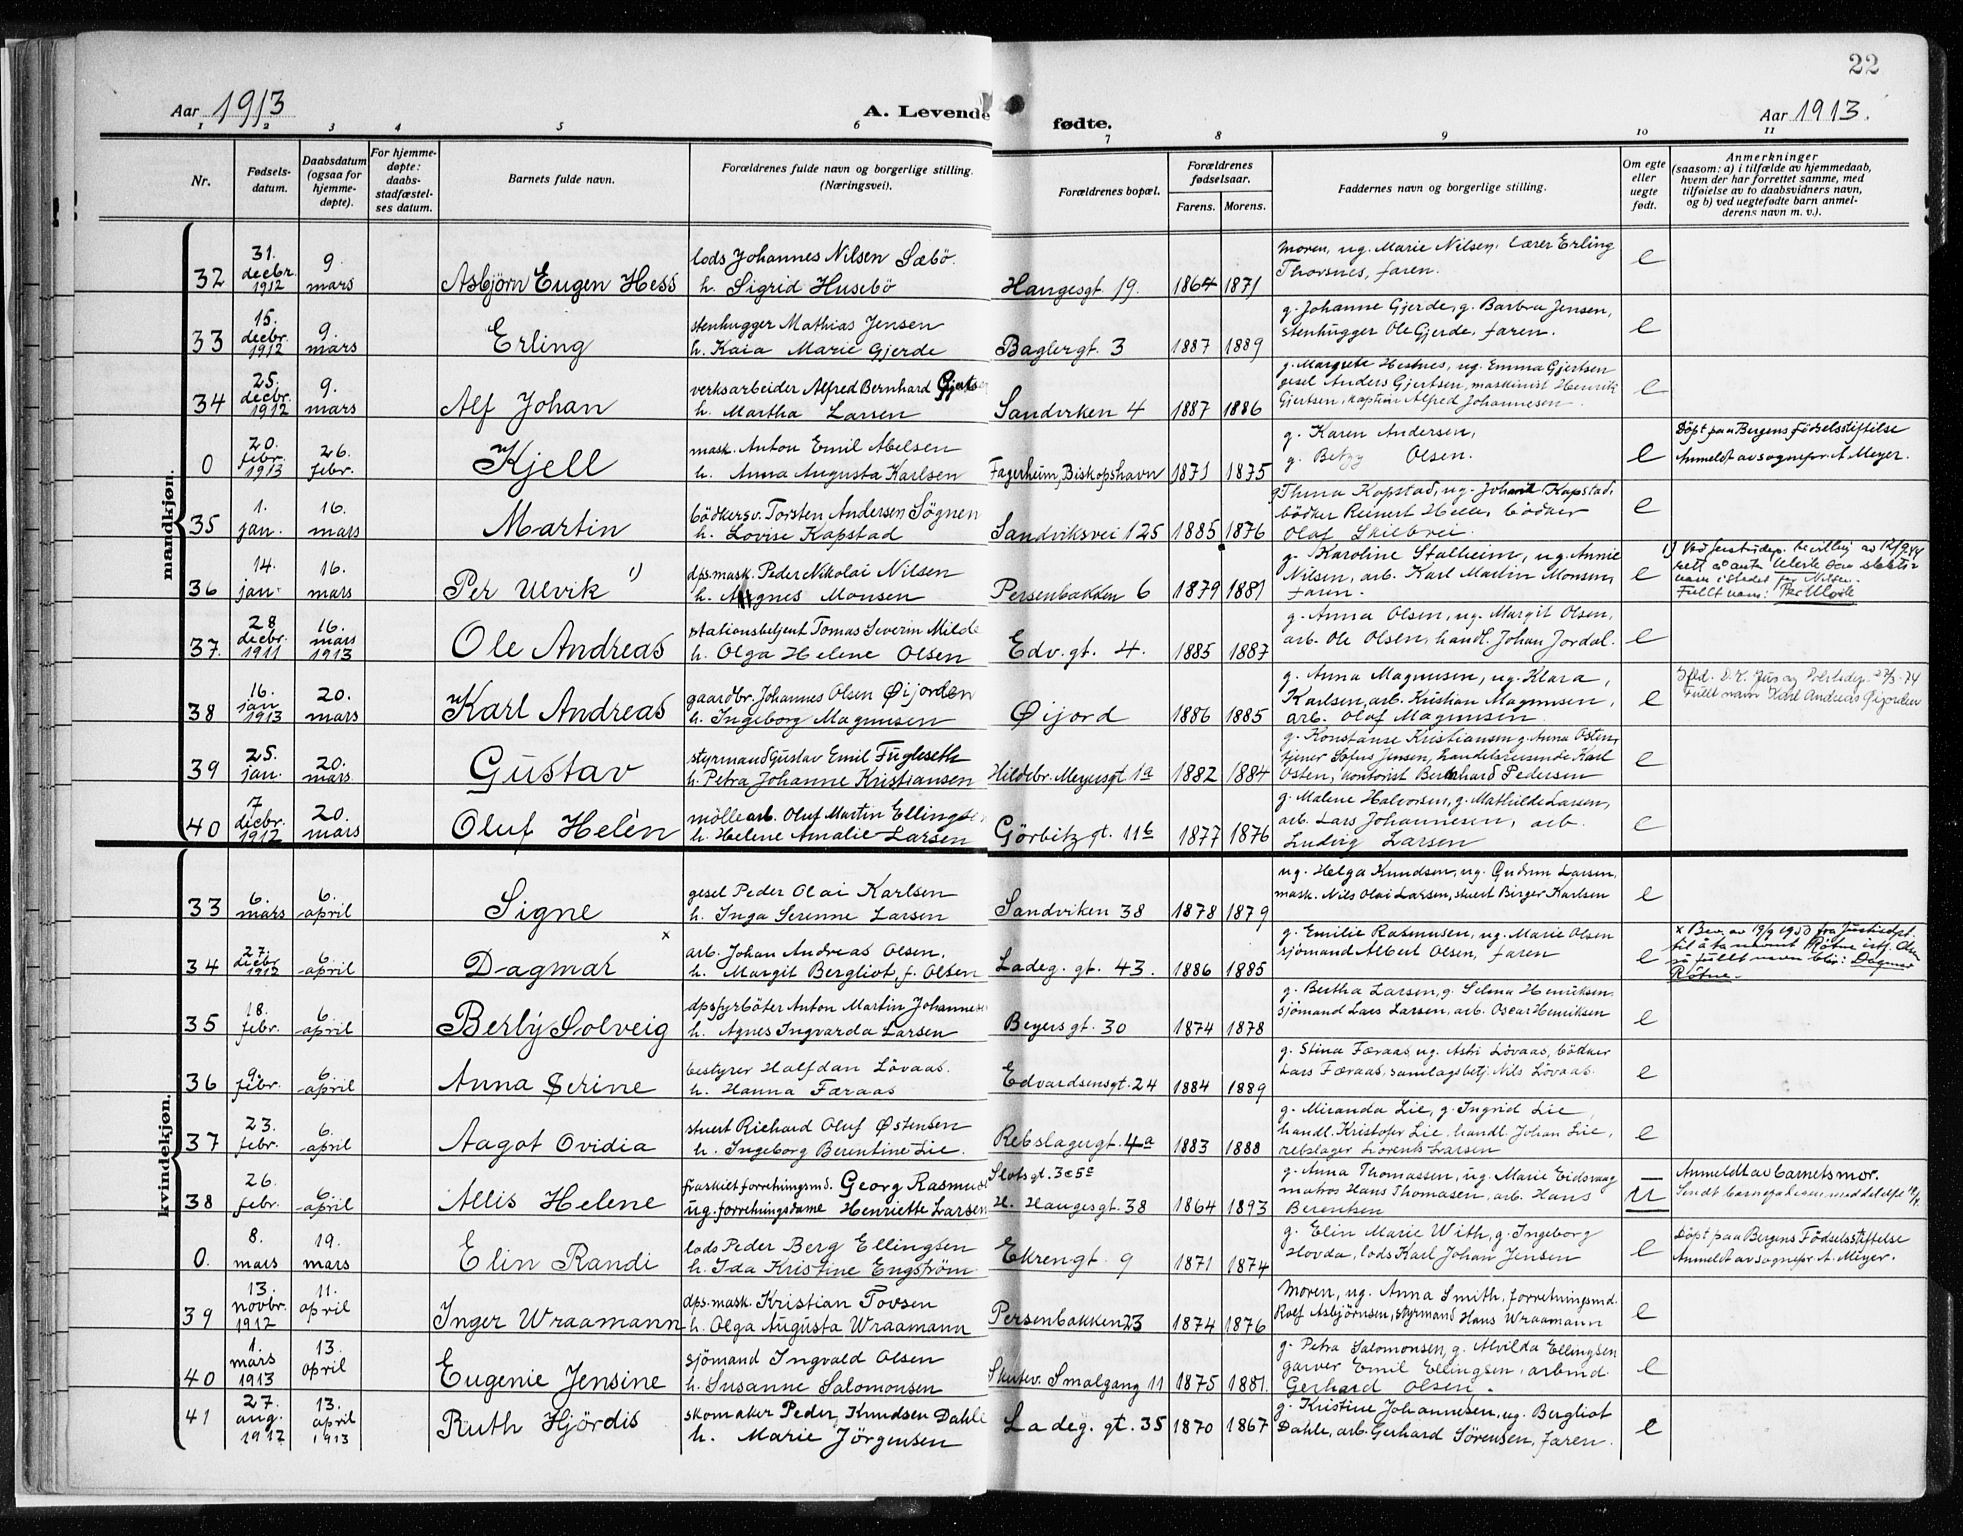 22
Aar 1913
A. Levende fødte.
Aar 1913.
1 2 3 4 5 6 7 8 9 10 11
Nr.
Fødsels-
datum.
Daabsdatum
(ogsaa for
hjemme-
døpte).
For hjemme-
døpte:
daabs-
stadfæstel-
ses datum.
Barnets fulde navn.
Forældrenes fulde navn og borgerlige stilling.
(Næringsvei).
Forældrenes bopæl.
Forældrenes
fødselsaar.
Farens. Morens.
Faddernes navn og borgerlige stilling.
Om egte
eller
uegte
født.
Anmerkninger
(saasom: a) i tilfælde av hjemmedaab,
hvem der har forrettet samme, med
tilføielse av to daabsvidners navn,
og b) ved uegtefødte barn anmel-
derens navn m. v.).
mandkjøn.
32 31. decbr. 1912 9. mars Asbjörn Eugen Hess
lods Johannes Nilsen Sæbö.
h. Sigrid Husebö
Haugesgt 19. 1864 1871
Moren, ug. Marie Nilsen, Lærer Erling
Thorsnes, faren.
e
33 15. decbr. 1912 9. mars Erling
stenhugger Mathias Jensen
h. Kaia Marie Gjerde
Baglergt. 3 1887 1889
g. Johanne Gjerde, g. Barbra Jensen,
stenhugger Ole Gjerde, faren.
e
34 25. decbr. 1912 9. mars Alf Johan
verksarbeider Alfred Bernhard Gjertsen
h. Martha Larsen
Sandviken 4 1887 1886
g. Margrete Hestnes, ug. Emma Gjertsen
gesel Anders Gjertsen, maskinist Henrik
Gjertsen, kaptein Alfred Johannesen.
e
0 20. febr. 1913 26. febr. Kjell
mask. Anton Emil Abelsen
h. Anna Augusta Karlsen
Fagerheim, Biskopshavn 1871 1875
g. Karen Andersen,
g. Betzy Olsen.
e
Döpt paa Bergens Födselsstiftelse
Anmeldt av sognepr. A. Meyer.
35 1. jan. 16. mars Martin
bödkersv. Torsten Andersen Søgnen
h. Lovise Kapstad
Sandviksvei 125 1885 1876
g Thina Kapstad, ug. Johan Kapstad,
bödker Reinert Helle, bödker
Olaf Skilbrei
e
36 14. jan. 16. mars Per Ulvik 1)
dps.mask. Peder Nikolai Nilsen
h. Agnes Monsen
Persenbakken 6 1879 1881
g. Karoline Stalheim, ug. Annie
Nilsen, arb. Karl Martin Monsen,
faren.
e
1) Ved bevilling av 12/9 44
rett å anta som slekts-
navn istedet for Nilsen.
Fullt navn: Per
37 28 decbr. 1911 16. mars 1913 Ole Andreas
stationsbetjent Tomas Severin Milde
h. Olga Helene Olsen
Edv.gt. 4. 1885 1887
g. Anna Olsen, ug. Margit Olsen,
arb. Ole Olsen, handl. Johan Jordal.
e
38 16. jan 1913 20. mars Karl Andreas
gaardbr. Johannes Olsen Øijorden
h. Ingeborg Magnusen
Øijord 1886 1885
g. Anna Magnusen, ug. Klara
Karlsen, arb. Kristian Magnusen,
arb. Olaf Magnusen
e
Fullt navn Karl Andreas Øijorden
39 25. jan. 20. mars Gustav
styrmand Gustav Emil Fugleseth
h. Petra Johanne Kristiansen
Hildebr. Meyersgt 1a 1882 1884
g. Konstanse Kristiansen g. Anna Osten,
tjener Sofus Jensen, handelsreisende Karl
Osten, kontorist Bernhard Pedersen
e
40 7 decbr. 1912 20. mars Oluf Helén
möllearb. Oluf Martin Ellingsen
h. Helene Amalie Larsen
Görbitzgt. 11b 1877 1876
g. Malene Halvorsen, g. Mathilde Larsen,
arb. Lars Johannesen, arb.
Ludvig Larsen
e
kvindekjøn.
33 6. mars 6. april Signe
gesel Peder Olai Karlsen
h. Inga Serenne Larsen
Sandviken 38 1878 1879
ug. Helga Knudsen, ug. Gudrun Larsen,
mask. Nils Olai Larsen, stuert Birger Karlsen
e
34 27. decbr. 1912 6. april Dagmar x
arb. Johan Andreas Olsen,
h. Margit Bergliot, f. Olsen
Ladeg. gt. 43. 1886 1885
g. Emilie Rasmusen, ug. Marie Olsen
sjömand Albert Olsen, faren
e
x Bev. av 19/9 1950 fra Justisdept.
til å ta navnet Røtne istf. Olsen
så fullt navn blir: Dagmar
Røtne.
35 18. febr. 6. april Berly Solveig
dpsfyrböter Anton Martin Johannesen
h. Agnes Ingvarda Larsen
Beyers gt. 30 1874 1878
g. Bertha Larsen, g. Selma Henriksen.
sjömand Lars Larsen, arb. Oscar Henriksen
e
36 9. febr. 6. april Anna Serine
bestyrer Halfdan Lövaas.
h. Hanna Færaas
Edvardsensgt. 24 1884 1889
g. Stina Færaas, ug. Astri Lövaas, bödker
Lars Færaas, samlagsbetj. Nils Lövaas.
e
37 23. febr. 6. april Aagot Ovidia
stuert Richard Oluf Østensen
h. Ingeborg Berentine Lie.
Rebslagergt. 4a 1883 1888
g. Miranda Lie, g. Ingrid Lie,
handl. Kristofer Lie, handl. Johan Lie,
rebslager Lorents Larsen
e
38 26. febr. 6. april Allis Helene
fraskilt forretningsmd. Georg Rasmus
ug. forretningsdame Henriette Larsen
Slotsgt. 3 c 5e
H. Haugesgt. 38 1864 1893
g. Anna Thomassen, ug. Marie Eidsvaag
matros Hans Thomasen, arb. Hans
Berentsen
u
Anmeldt av barnets mor.
Sendt barnefaderen meddelelse
0. 8. mars 19. mars Elin Randi
lods Peder Berg Ellingsen
h. Ida Kristine Engström.
Ekrengt 9 1871 1874
g. Elin Marie With, g. Ingeborg
Hovda, lods Karl Johan Jensen
e
Döpt paa Bergens Födselsstiftelse
Anmeldt av sognepr. A. Meyer.
39 13. novbr. 1912 11. april Inger Wraamann
dps.mask. Kristian Tovsen
h. Olga Augusta Wraamann
Persenbakken 23 1874 1876
Moren, ug. Anna Smith, forretningsmd.
Rolf Asbjörnsen, styrmand Hans Wraamann
e
40 1. mars 1913 13. april Eugenie Jensine
sjömand Ingvald Olsen
h. Susanne Salomonsen
Skutev. Smalgang 11 1875 1881.
g. Petra Salomonsen, g. Alvilda Ellingsen
garver Emil Ellingsen, arbmd.
Gerhard Olsen.
e
41 27. aug. 1912 13. april 1913 Ruth Hjördis
skomaker Peder Knudsen Dahle
h. Marie Jörgensen
Ladeg. gt. 35 1870 1867
g. Kristine Johannesen, ug. Bergliot
Dahle, arb. Gerhard Sörensen, faren.
e